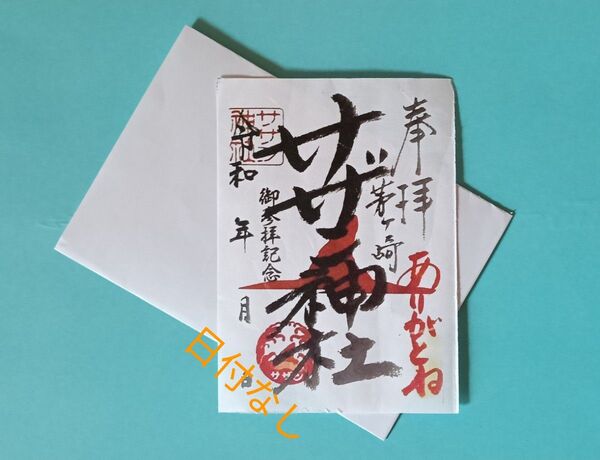 奉拝
茅ヶ崎
ありがとね
サザン神社
御参拝記念
令和 年 月 日
サザン
神社
サザン
日付なし